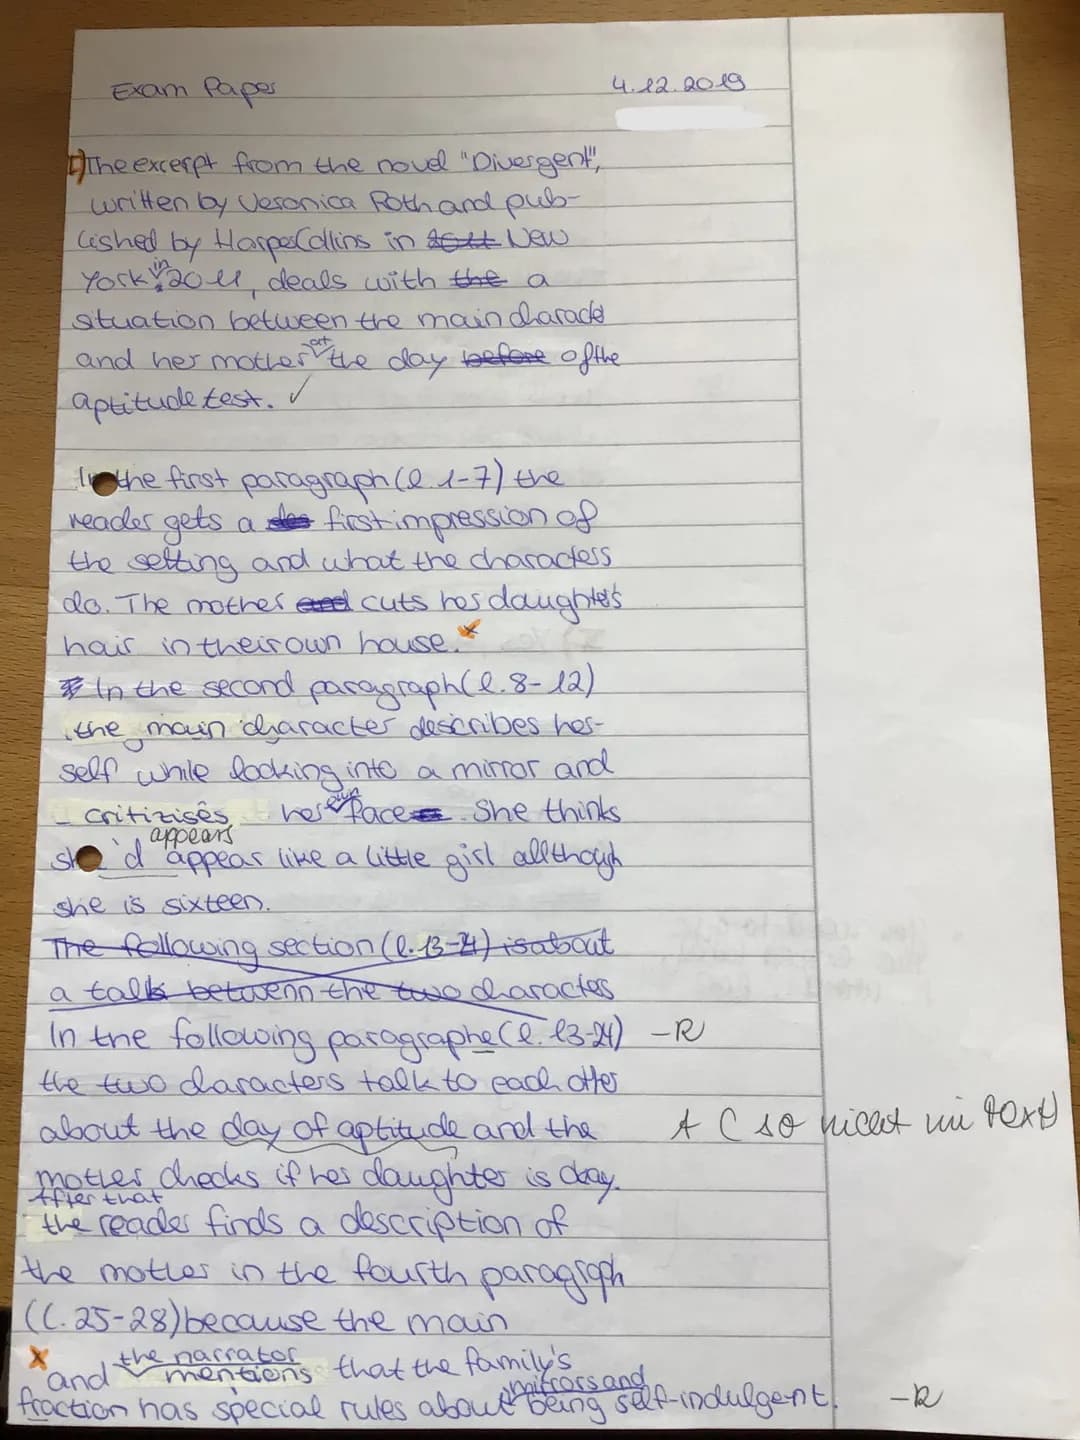 Exam Paper 4.12.2019
I) The excerpt from the novel "Divergent",
written by Veronica Roth and pub-
lished by HarperCollins in 2011 New
York in 2011, deals with the a
situation between the main character
and her mother at the day before of the
aptitude test. ✓
In the first paragraph (l. 1-7) the
reader gets a first impression of
the setting and what the characters
do. The mother and cuts her daughter's
hair in their own house. x
In the second paragraph (l. 8-12)
the main character describes her-
self while looking into a mirror and
critizises her own face. She thinks
appears
she'd appear like a little girl allthough
she is sixteen.
The following section (l. 13-24) is about
a talk betwenn the two characters
In the following paragraphe (l. 13-24) -R
the two characters talk to each other
about the day of aptitude and the A (so nicht im Text)
mother checks if her daughter is okay.
After that
the reader finds a description of
the mother in the fourth paragraph
(l. 25-28) because the main
x and the narrator mentions that the family's
fraction has special rules about mirrors and being self-indulgent. -R